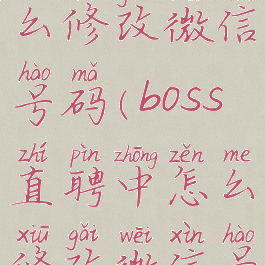 么修改微信
hào mǎ
号码(boss
zhí pìn zhōng zěn me
直聘中怎么
xiū gǎi wēi xìn hào
修改微信号